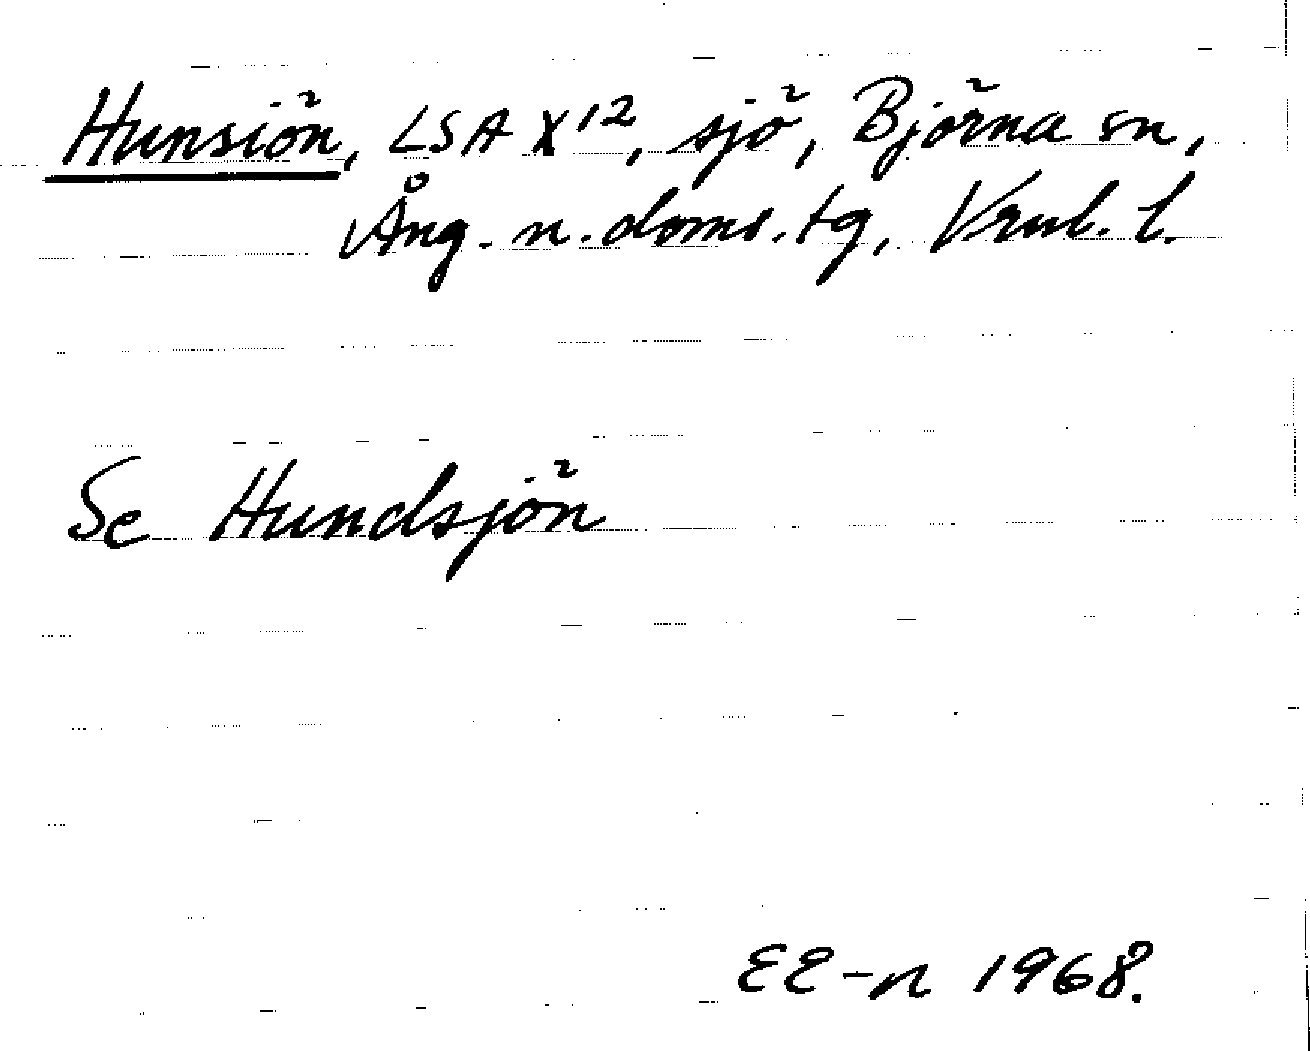 Hunsiön, LSA X12, sjö, Björna sn,
Ång. n. doms. tg, Vrnl. l.
Se Hundsjön
EE-n 1968.